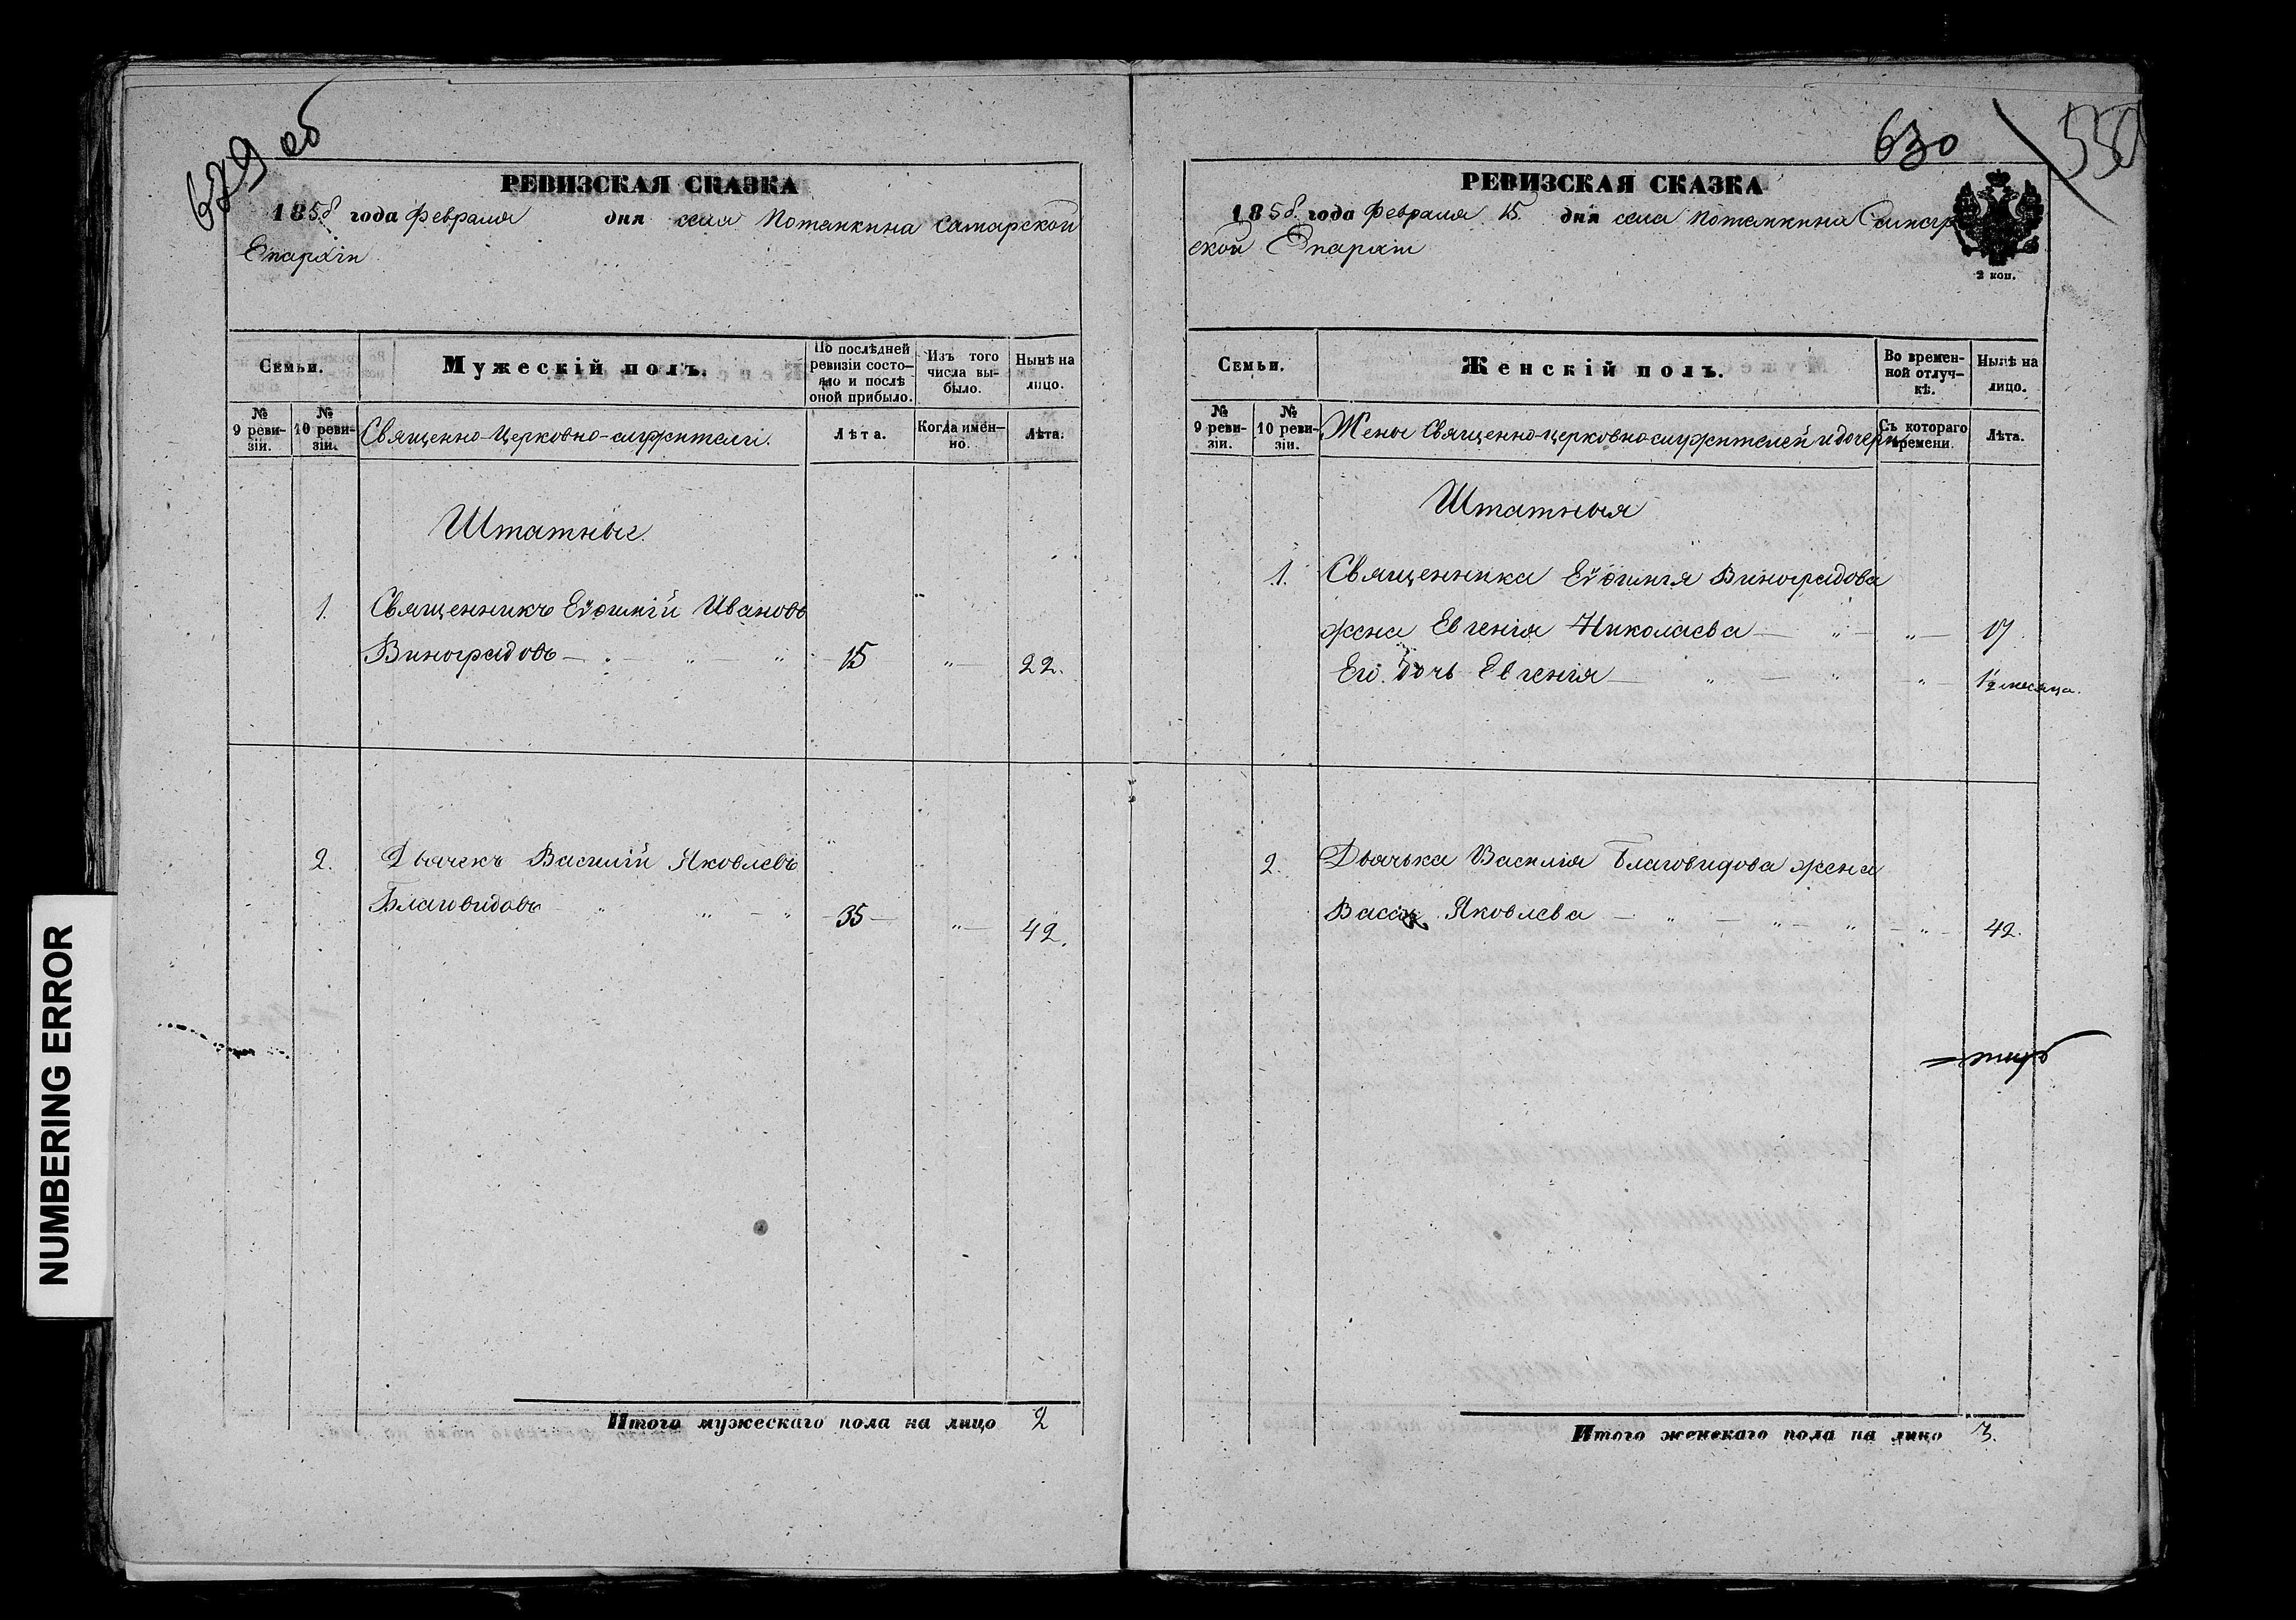 629 об
РЕВИЗСКАЯ СКАЗКА
1858 года Февраля дня села Потанкина Самарской
Епархіи
Семьи.
Мужескій полъ.
По послѣдней ревизіи состояло и послѣ оной прибыло.
Изъ того числа выбыло.
Нынѣ на лицо.
№ 9 ревизіи.
№ 10 ревизіи.
Священно-Церковно-служители.
Лѣта.
Когда именно.
Лѣта.
Штатные.
1. Священникъ Евѳимій Ивановъ
Виноградовъ — „ — „ 15 „ 22.
2. Дьячекъ Василій Яковлевъ
Благовидовъ „ „ — „ 35 „ 42.
Итого мужескаго пола на лицо 2
630
РЕВИЗСКАЯ СКАЗКА
1858. года Февраля 15. дня села Потанкина Самар
ской Епархіи
2 коп.
Семьи.
Женскій полъ.
Во временной отлучкѣ.
Нынѣ на лицо.
№ 9 ревизіи.
№ 10 ревизіи.
Жены Священно-церковно-служителей и дочери
Съ котораго времени.
Лѣта.
Штатныя
1. Священника Евѳимія Виноградова
жена Евгенія Николаева — „ — „ 17
Его дочь Евгенія — „ — „ „ 1½ месяца.
2. Дьячька Василія Благовидова жена
Васса Яковлева — „ — „ — „ „ 42.
Итого женскаго пола на лицо 3.
NUMBERING ERROR